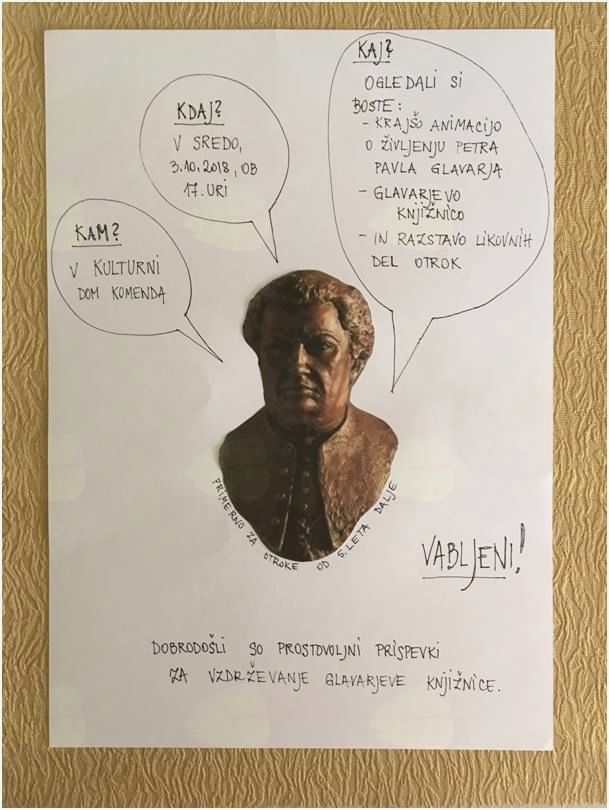 KAM?
V KULTURNI
DOM KOMENDA
KDAJ?
V SREDO,
3.10.2018, OB
17. URI
KAJ?
OGLEDALI SI
BOSTE:
- KRAJŠO ANIMACIJO
O ŽIVLJENJU PETRA
PAVLA GLAVARJA
- GLAVARJEVO
KNJIŽNICO
- IN RAZSTAVO LIKOVNIH
DEL OTROK
PRIMERNO ZA OTROKE OD 5. LETA DALJE
VABLJENI!
DOBRODOŠLI SO PROSTOVOLJNI PRISPEVKI
ZA VZDRŽEVANJE GLAVARJEVE KNJIŽNICE.